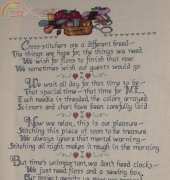 Cross-stitchers are a different breed—
The things we hope for, the things we need.
We wish for floss to finish that row.
We sometimes wish our guests would go.
We wait all day for that time to be—
That special time - that time for ME.
Each needle is threaded, the colors arrayed
Scissors and chart have been carefully laid.
Now we relax, this is our pleasure—
Stitching this piece of soon to be treasure
We always ignore that mental warning—
Stitching all night makes it rough in the morning
But time's unimportant, we don't need clocks—
We just need floss and a sewing box.